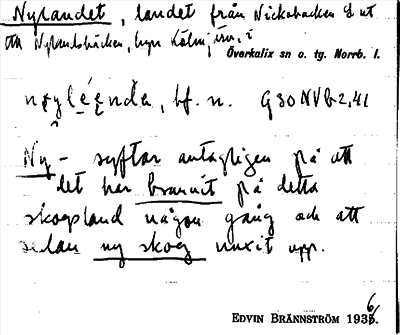 Nylandet, landet från Nickobacken o ut
till Nylandsbäcken, byn Kölmj
Överkalix sn o. tg. Norrb. l.
bf. n. G30NVb2,41
Ny- syftar antagligen på att
det har brunnit på detta
skogsland någon gång och att
sedan ny skog vuxit upp.
EDVIN BRÄNNSTRÖM 1936.